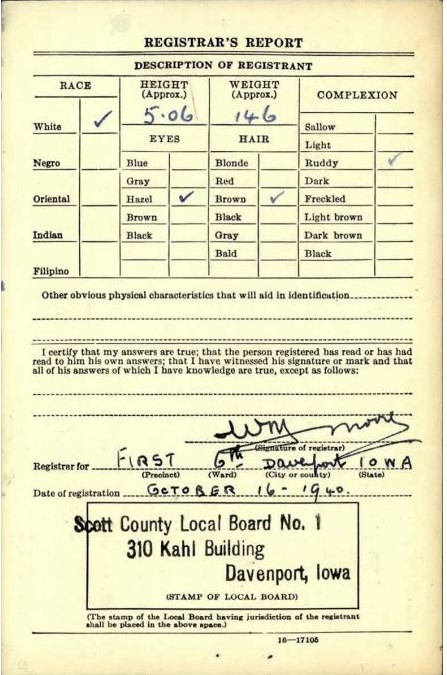 REGISTRAR'S REPORT
DESCRIPTION OF REGISTRANT
RACE
HEIGHT
(Approx.)
WEIGHT
(Approx.)
COMPLEXION
5.06
146
White ✓
EYES
HAIR
Sallow
Light
Negro
Blue
Blonde
Ruddy ✓
Gray
Red
Dark
Oriental
Hazel ✓
Brown ✓
Freckled
Brown
Black
Light brown
Indian
Black
Gray
Dark brown
Bald
Black
Filipino
Other obvious physical characteristics that will aid in identification
I certify that my answers are true; that the person registered has read or has had
read to him his own answers; that I have witnessed his signature or mark and that
all of his answers of which I have knowledge are true, except as follows:
Wm Moore
(Signature of registrar)
Registrar for FIRST 6th Davenport IOWA
(Precinct) (Ward) (City or county) (State)
Date of registration OCTOBER 16 - 1940.
Scott County Local Board No. 1
310 Kahl Building
Davenport, Iowa
(STAMP OF LOCAL BOARD)
(The stamp of the Local Board having jurisdiction of the registrant
shall be placed in the above space.)
16—17105